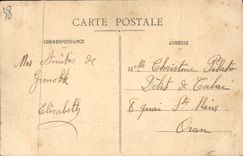 38
CARTE POSTALE
CORRESPONDANCE
ADRESSE
Mes Amitiés de
Grenoble
Elisabeth
Mlle Christine Pilato
Débit de Tabac
8 quai Ste Marie
Oran